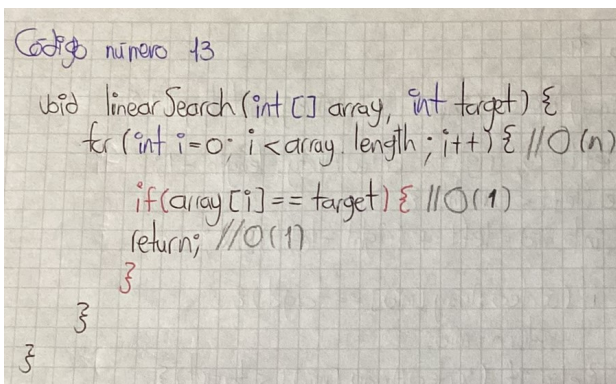 Código número 13
void linearSearch(int [] array, int target) {
for (int i=0; i<array.length; i++) { //O(n)
if(array[i]== target) { //O(1)
return; //O(1)
}
}
}